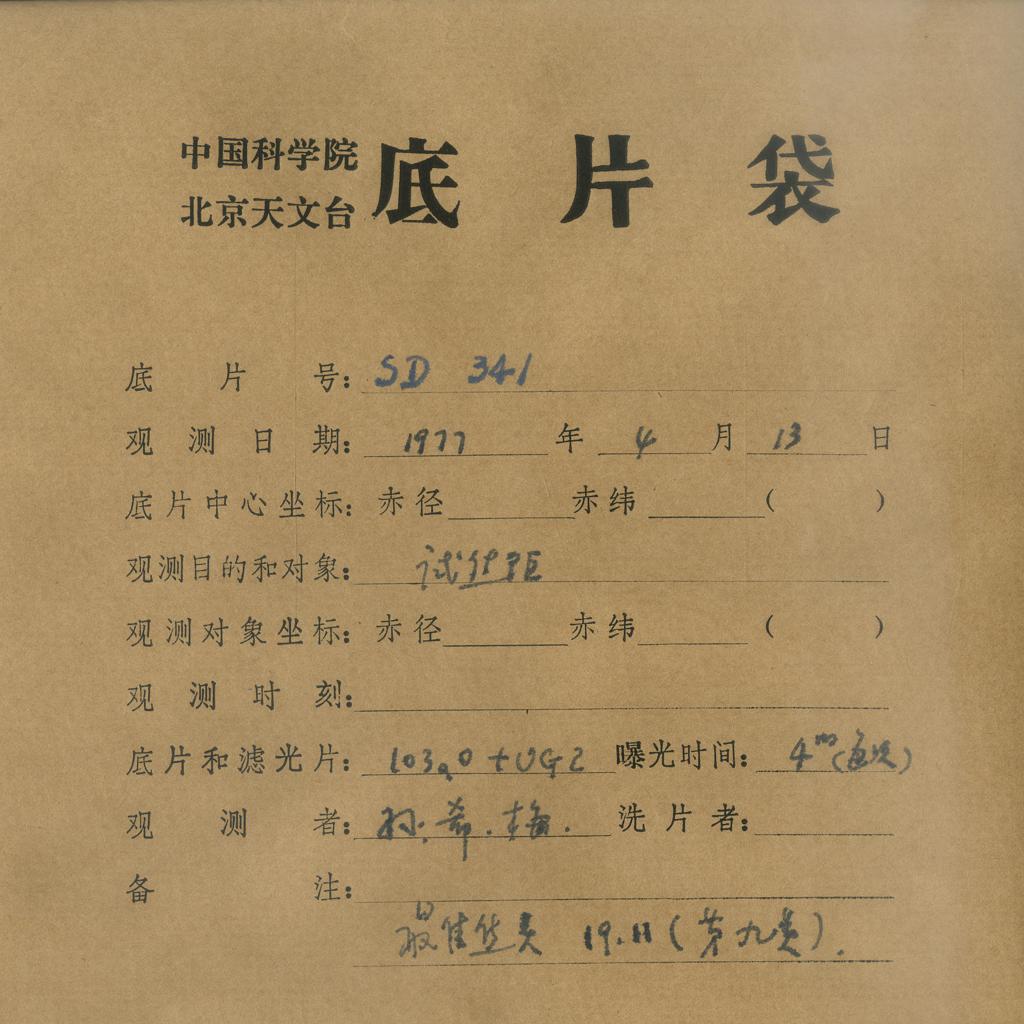 中国科学院
北京天文台
底片袋
底片号: SD 341
观测日期: 1977 年 4 月 13 日
底片中心坐标: 赤径 赤纬 ( )
观测目的和对象: 试焦距
观测对象坐标: 赤径 赤纬 ( )
观测时刻:
底片和滤光片: 103aO + UG2 曝光时间: 4m(每次)
观测者: 孙. 希. 梅. 洗片者:
备注:
最佳焦点 19.11 (第九类).